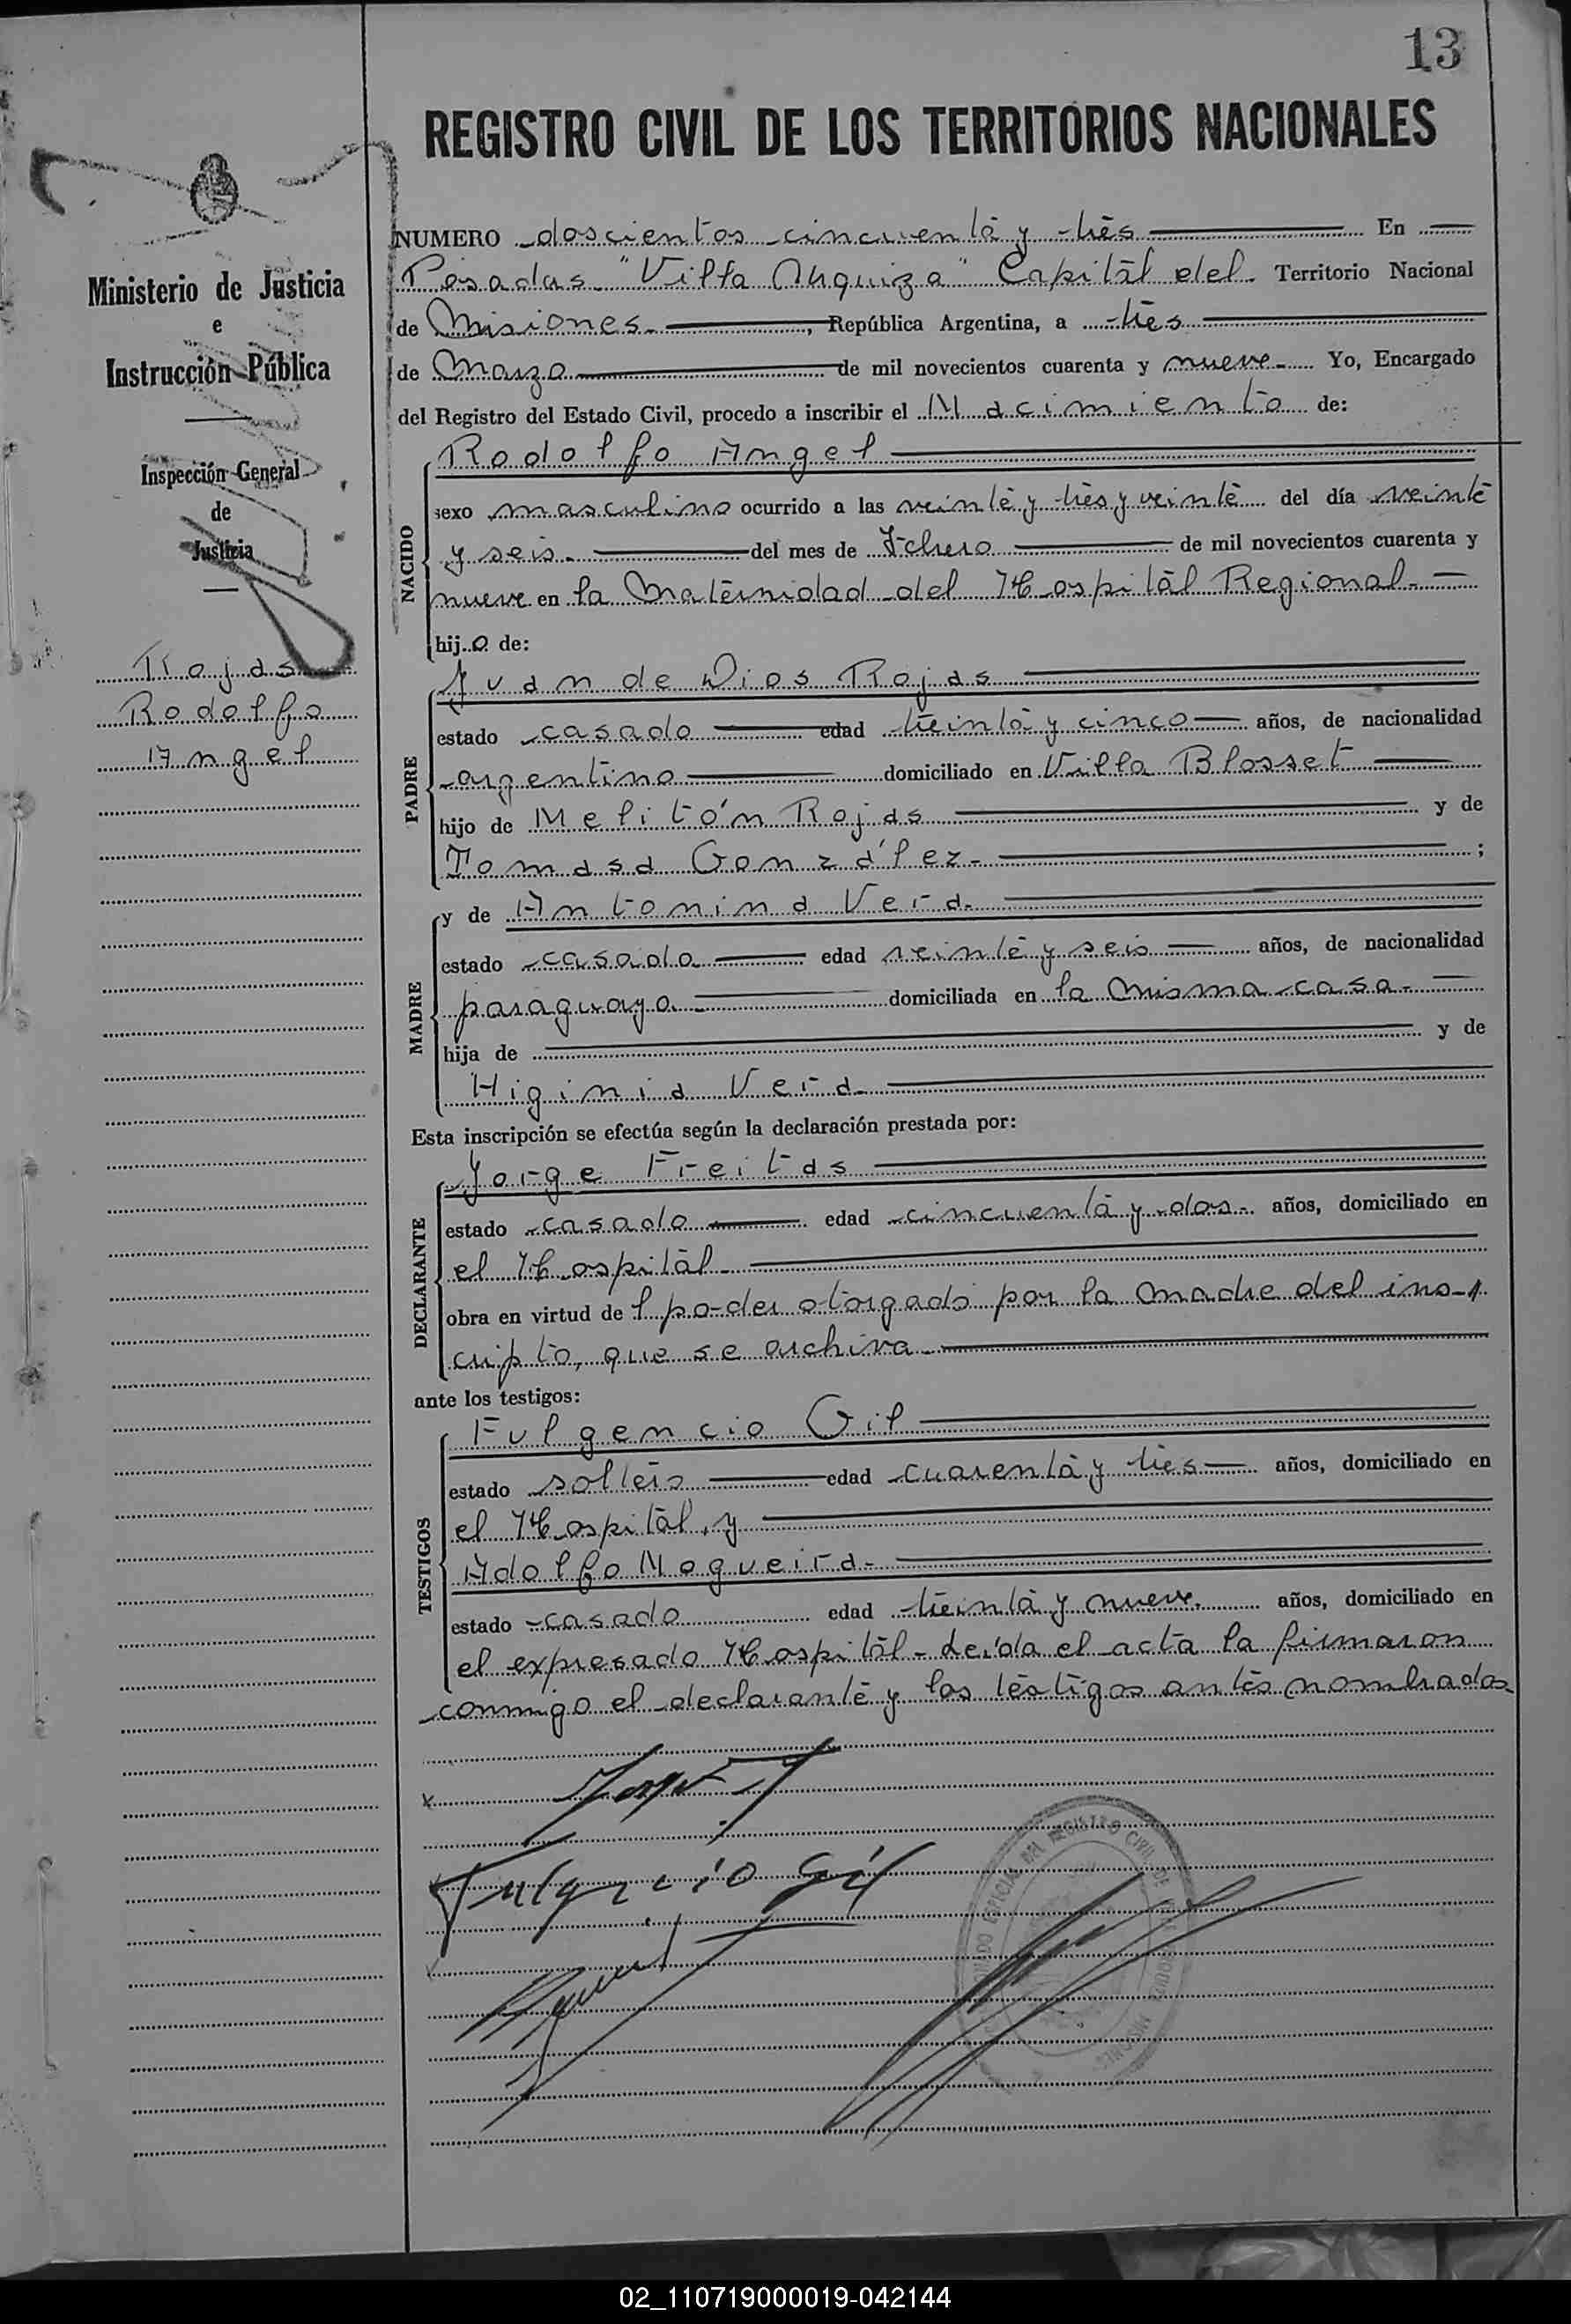 13
REGISTRO CIVIL DE LOS TERRITORIOS NACIONALES
Ministerio de Justicia
e
Instrucción Pública
Inspección General
de
Justicia
Rojas
Rodolfo
Angel
NUMERO doscientos cincuenta y tres En
Posadas "Villa Urquiza" Capital del Territorio Nacional
de Misiones, República Argentina, a tres
de Marzo de mil novecientos cuarenta y nueve Yo, Encargado
del Registro del Estado Civil, procedo a inscribir el Nacimiento de:
Rodolfo Angel
NACIDO
sexo masculino ocurrido a las veinte y tres y veinte del día veinte
y seis. del mes de Febrero de mil novecientos cuarenta y
nueve en la Maternidad del Hospital Regional.
hijo de:
Juan de Dios Rojas
PADRE
estado casado edad treinta y cinco años, de nacionalidad
argentino domiciliado en Villa Blosset
hijo de Melitón Rojas y de
Tomasa González. ;
MADRE
y de Antonina Vera.
estado casada edad veinte y seis años, de nacionalidad
paraguaya domiciliada en la misma casa.
hija de y de
Higinia Vera.
Esta inscripción se efectúa según la declaración prestada por:
Jorge Freitas
DECLARANTE
estado casado edad cincuenta y dos. años, domiciliado en
el Hospital.
obra en virtud del poder otorgado por la madre del ins-
cripto, que se archiva.
ante los testigos:
Fulgencio Gil
TESTIGOS
estado soltero edad cuarenta y tres años, domiciliado en
el Hospital, y
Adolfo Nogueira.
estado casado edad treinta y nueve. años, domiciliado en
el expresado Hospital. Leída el acta la firmaron
conmigo el declarante y los testigos antes nombrados
Fulgencio Gil
DEL REGISTRO CIVIL DE
MISIONES
02_110719000019-042144